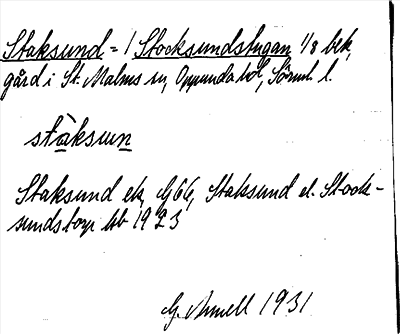 Staksund = 1 Stocksundstugan 1/8 bek,
gård i St. Malms sn, Oppunda hd, Söderml. l.
stàksun
Staksund ek, G66, Staksund el. Stock-
sundstorp hb 1923
G. Armell 1931